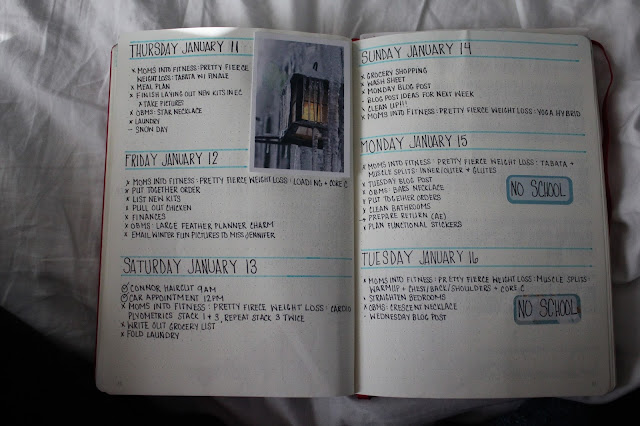 THURSDAY JANUARY 11
x MOMS INTO FITNESS: PRETTY FIERCE
WEIGHT LOSS: TABATA W1 FINALE
x MEAL PLAN
x FINISH LAYING OUT NEW KITS IN EC
x TAKE PICTURES
x OBMS: STAR NECKLACE
x LAUNDRY
- SNOW DAY
FRIDAY JANUARY 12
x MOMS INTO FITNESS: PRETTY FIERCE WEIGHT LOSS: LOADING + CORE C
x PUT TOGETHER ORDER
x LIST NEW KITS
x PULL OUT CHICKEN
x FINANCES
x OBMS: LARGE FEATHER PLANNER CHARM
x EMAIL WINTER FUN PICTURES TO MISS JENNIFER
SATURDAY JANUARY 13
CONNOR HAIRCUT 9AM
CAR APPOINTMENT 12PM
x MOMS INTO FITNESS: PRETTY FIRECE WEIGHT LOSS: CARDIO
PLYOMETRICS STACK 1 + 3, REPEAT STACK 3 TWICE
x WRITE OUT GROCERY LIST
x FOLD LAUNDRY
SUNDAY JANUARY 14
x GROCERY SHOPPING
x WASH SHEET
x MONDAY BLOG POST
- BLOG POST IDEAS FOR NEXT WEEK
x CLEAN UP!!!
x MOMS INTO FITNESS: PRETTY FIERCE WEIGHT LOSS: YOGA HYBRID
MONDAY JANUARY 15
x MOMS INTO FITNESS: PRETTY FIERCE WEIGHT LOSS: TABATA +
MUSCLE SPLITS: INNER/OUTER + GLUTES
x TUESDAY BLOG POST
x OBMS: BARS NECKLACE
x PUT TOGETHER ORDERS
x CLEAN BATHROOMS
→ PREPARE RETURN (AE)
x PLAN FUNCTIONAL STICKERS
NO SCHOOL
TUESDAY JANUARY 16
x MOMS INTO FITNESS: PRETTY FIERCE WEIGHT LOSS: MUSCLE SPLITS:
WARMUP + CHEST/BACK/SHOULDERS + CORE C
x STRAIGHTEN BEDROOMS
x OBMS: CRESCENT NECKLACE
- WEDNESDAY BLOG POST
NO SCHOOL